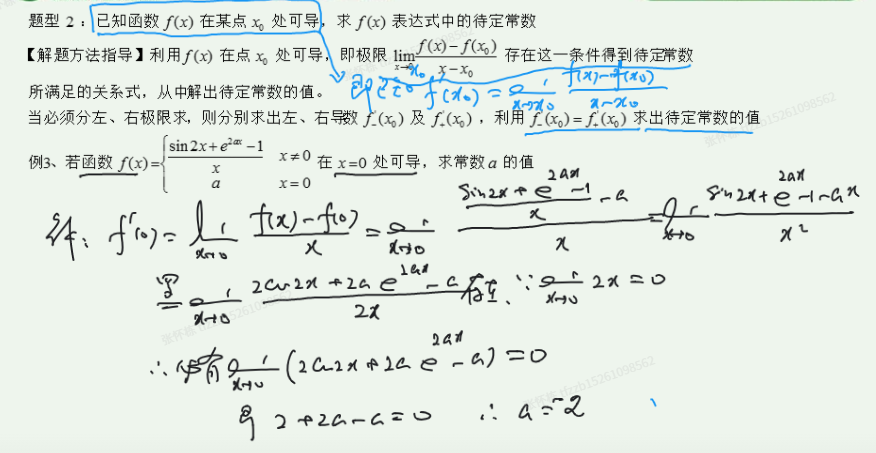 题型 2：已知函数 f(x) 在某点 x₀ 处可导，求 f(x) 表达式中的待定常数
【解题方法指导】利用 f(x) 在点 x₀ 处可导，即极限 lim_{x→x₀} (f(x)−f(x₀))/(x−x₀) 存在这一条件得到待定常数
所满足的关系式，从中解出待定常数的值。
f'(x₀) = lim_{x→x₀} (f(x)−f(x₀))/(x−x₀)
当必须分左、右极限求，则分别求出左、右导数 f'₋(x₀) 及 f'₊(x₀)，利用 f'₋(x₀)=f'₊(x₀) 求出待定常数的值
例3、若函数 f(x)={ (sin2x+e^{2ax}−1)/x x≠0 ; a x=0 在 x=0 处可导，求常数 a 的值
解: f'(0) = lim_{x→0} (f(x)−f(0))/x = lim_{x→0} ((sin2x+e^{2ax}−1)/x −a)/x = lim_{x→0} (sin2x+e^{2ax}−1−ax)/x²
= lim_{x→0} (2cos2x+2a e^{2ax}−a)/2x 存在. ∵ lim_{x→0} 2x=0
∴ lim_{x→0} (2cos2x+2a e^{2ax}−a)=0
即 2+2a−a=0 ∴ a=−2